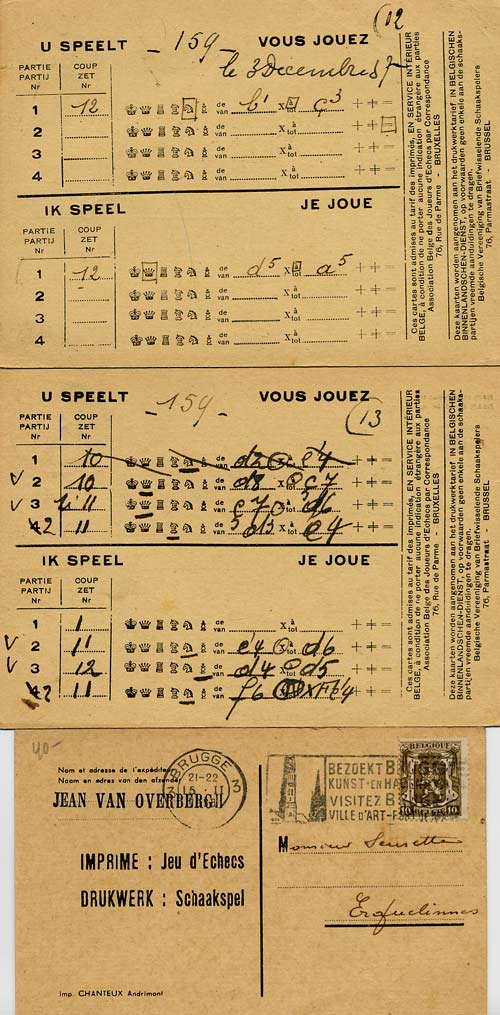 (12
U SPEELT - 159 - VOUS JOUEZ
le 3 Decembre 37
PARTIE PARTIJ Nr COUP ZET Nr
1 12 de van b1 X à tot c3 + ‡ =
2 de van X à tot + ‡ =
3 de van X à tot + ‡ =
4 de van X à tot + ‡ =
IK SPEEL JE JOUE
PARTIE PARTIJ Nr COUP ZET Nr
1 12 de van d5 X à tot a5 + ‡ =
2 de van X à tot + ‡ =
3 de van X à tot + ‡ =
4 de van X à tot + ‡ =
Ces cartes sont admises au tarif des imprimés, EN SERVICE INTÉRIEUR
BELGE, à condition de ne porter aucune indication étrangère aux parties
Association Belge des Joueurs d'Echecs par Correspondance
76, Rue de Parme - BRUXELLES
Deze kaarten worden aangenomen aan het drukwerktarief IN BELGISCHEN
BINNENLANDSCHEN-DIENST, op voorwaarden geen enkele aan de schaak-
partijen vreemde aanduidingen te dragen.
Belgische Vereeniging van Briefwisselende Schaakspelers
76, Parmastraat - BRUSSEL
U SPEELT - 159 - VOUS JOUEZ
(13
PARTIE PARTIJ Nr COUP ZET Nr
1 10 de van d2 à tot e4 + ‡ =
2 10 de van d8 à tot c7 + ‡ =
3 11 de van e7 X à tot d6 + ‡ =
2 11 de van X à tot e4 + ‡ =
IK SPEEL JE JOUE
PARTIE PARTIJ Nr COUP ZET Nr
1 1 de van X à tot + ‡ =
2 11 de van e4 d6 + ‡ =
3 12 de van d4 d5 + ‡ =
2 11 de van f6 + ‡ =
Ces cartes sont admises au tarif des imprimés, EN SERVICE INTÉRIEUR
BELGE, à condition de ne porter aucune indication étrangère aux parties
Association Belge des Joueurs d'Echecs par Correspondance
76, Rue de Parme - BRUXELLES
Deze kaarten worden aangenomen aan het drukwerktarief IN BELGISCHEN
BINNENLANDSCHEN-DIENST, op voorwaarden geen enkele aan de schaak-
partijen vreemde aanduidingen te dragen.
Belgische Vereeniging van Briefwisselende Schaakspelers
76, Parmastraat - BRUSSEL
40-
Nom et adresse de l'expéditeur
Naam en adres van den afzender
JEAN VAN OVERBERGH
BRUGGE 3
21-22
BEZOEKT
KUNST-EN
VISITEZ
VILLE D'ART
BELGIQUE
10 10
IMPRIME : Jeu d'Echecs
DRUKWERK : Schaakspel
Monsieur
Erquelinnes
Imp. CHANTEUX Andrimont